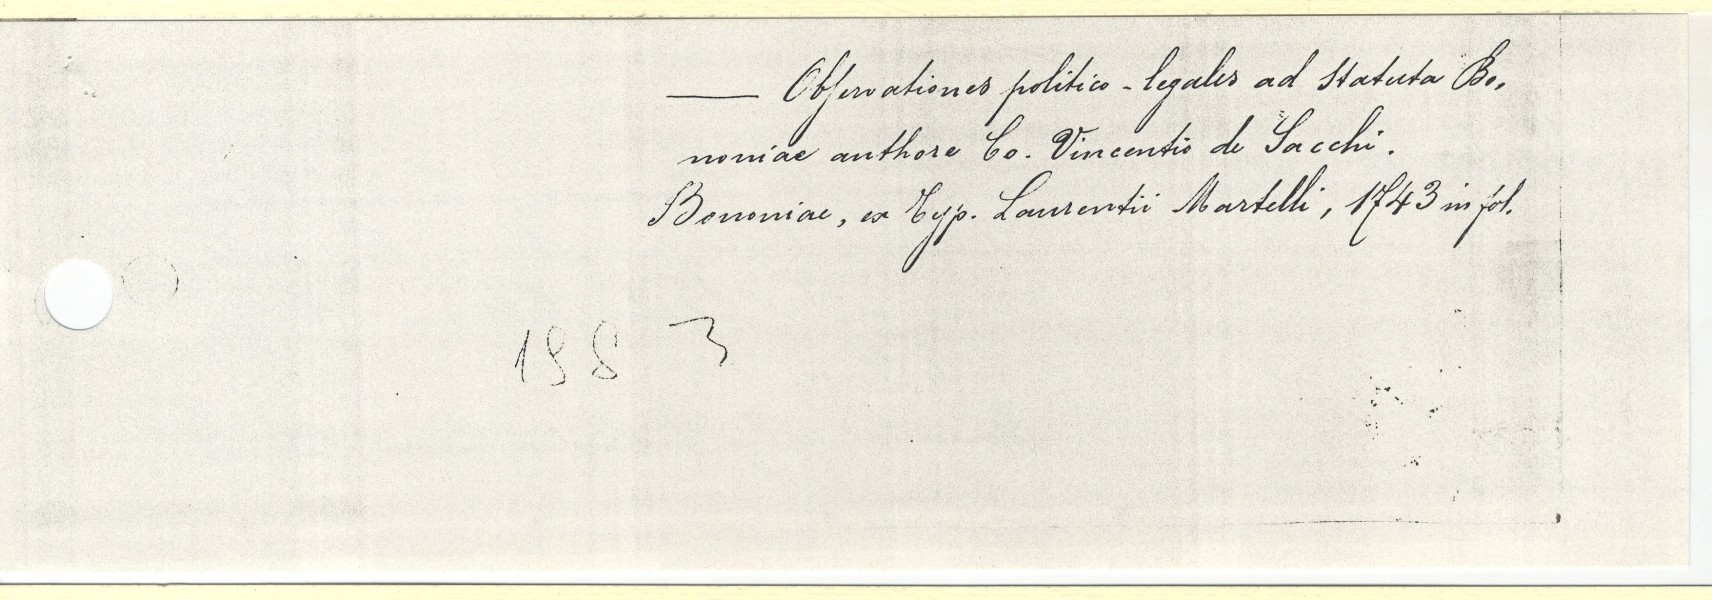 —— Observationes politico-legales ad statuta Bo-
noniae authore Co. Vincentio de Sacchi.
Bononiae, ex Typ. Laurentii Martelli, 1743 in fol.
198 3